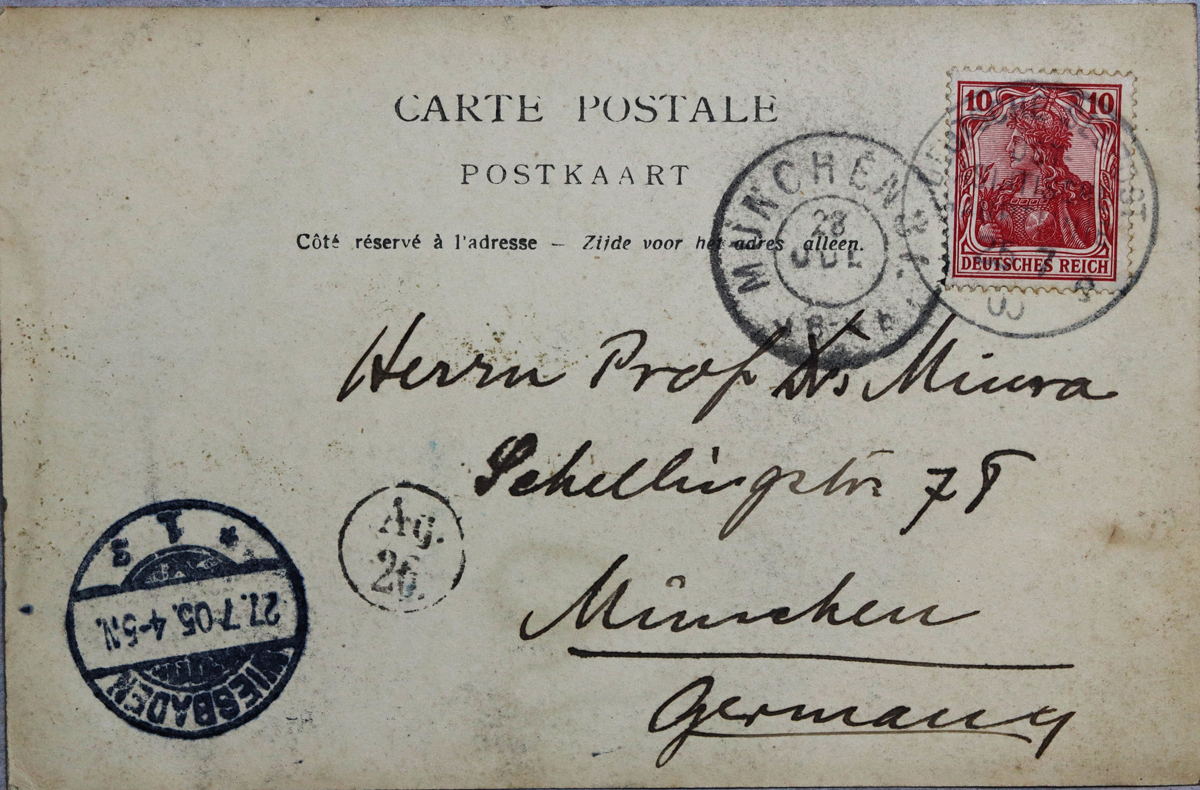 CARTE POSTALE
POSTKAART
Côté réservé à l'adresse – Zijde voor het adres alleen.
10 10
DEUTSCHES REICH
MÜNCHEN
28
JUL
Herrn Prof Dr. Miura
Schellingstr. 7
München
Germany
Ag.
26.
WIESBADEN
27.7.05. 4-5.N.
* 1 s